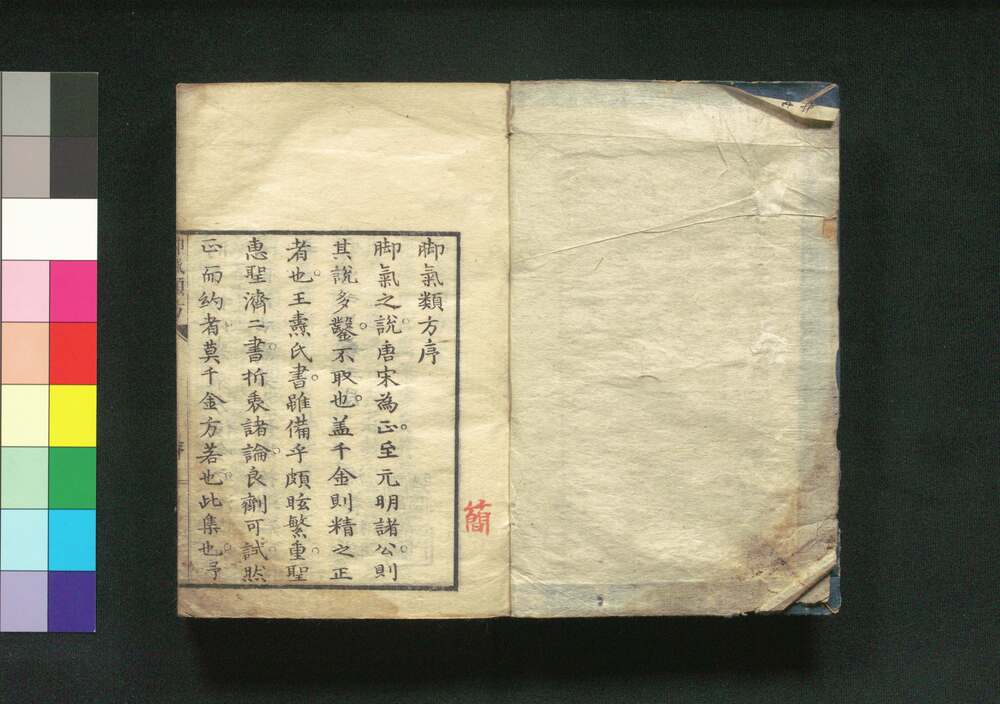 脚氣類方序
脚氣之說唐宋為正。至元明諸公。則
其說多鑿。不取也。盖千金則精之正
者也。王燾氏書。雖備乎頗眩繁重。聖
惠聖濟二書。折衷諸論。良劑可試。然
正而約者莫千金方若也。此集也。予
簡